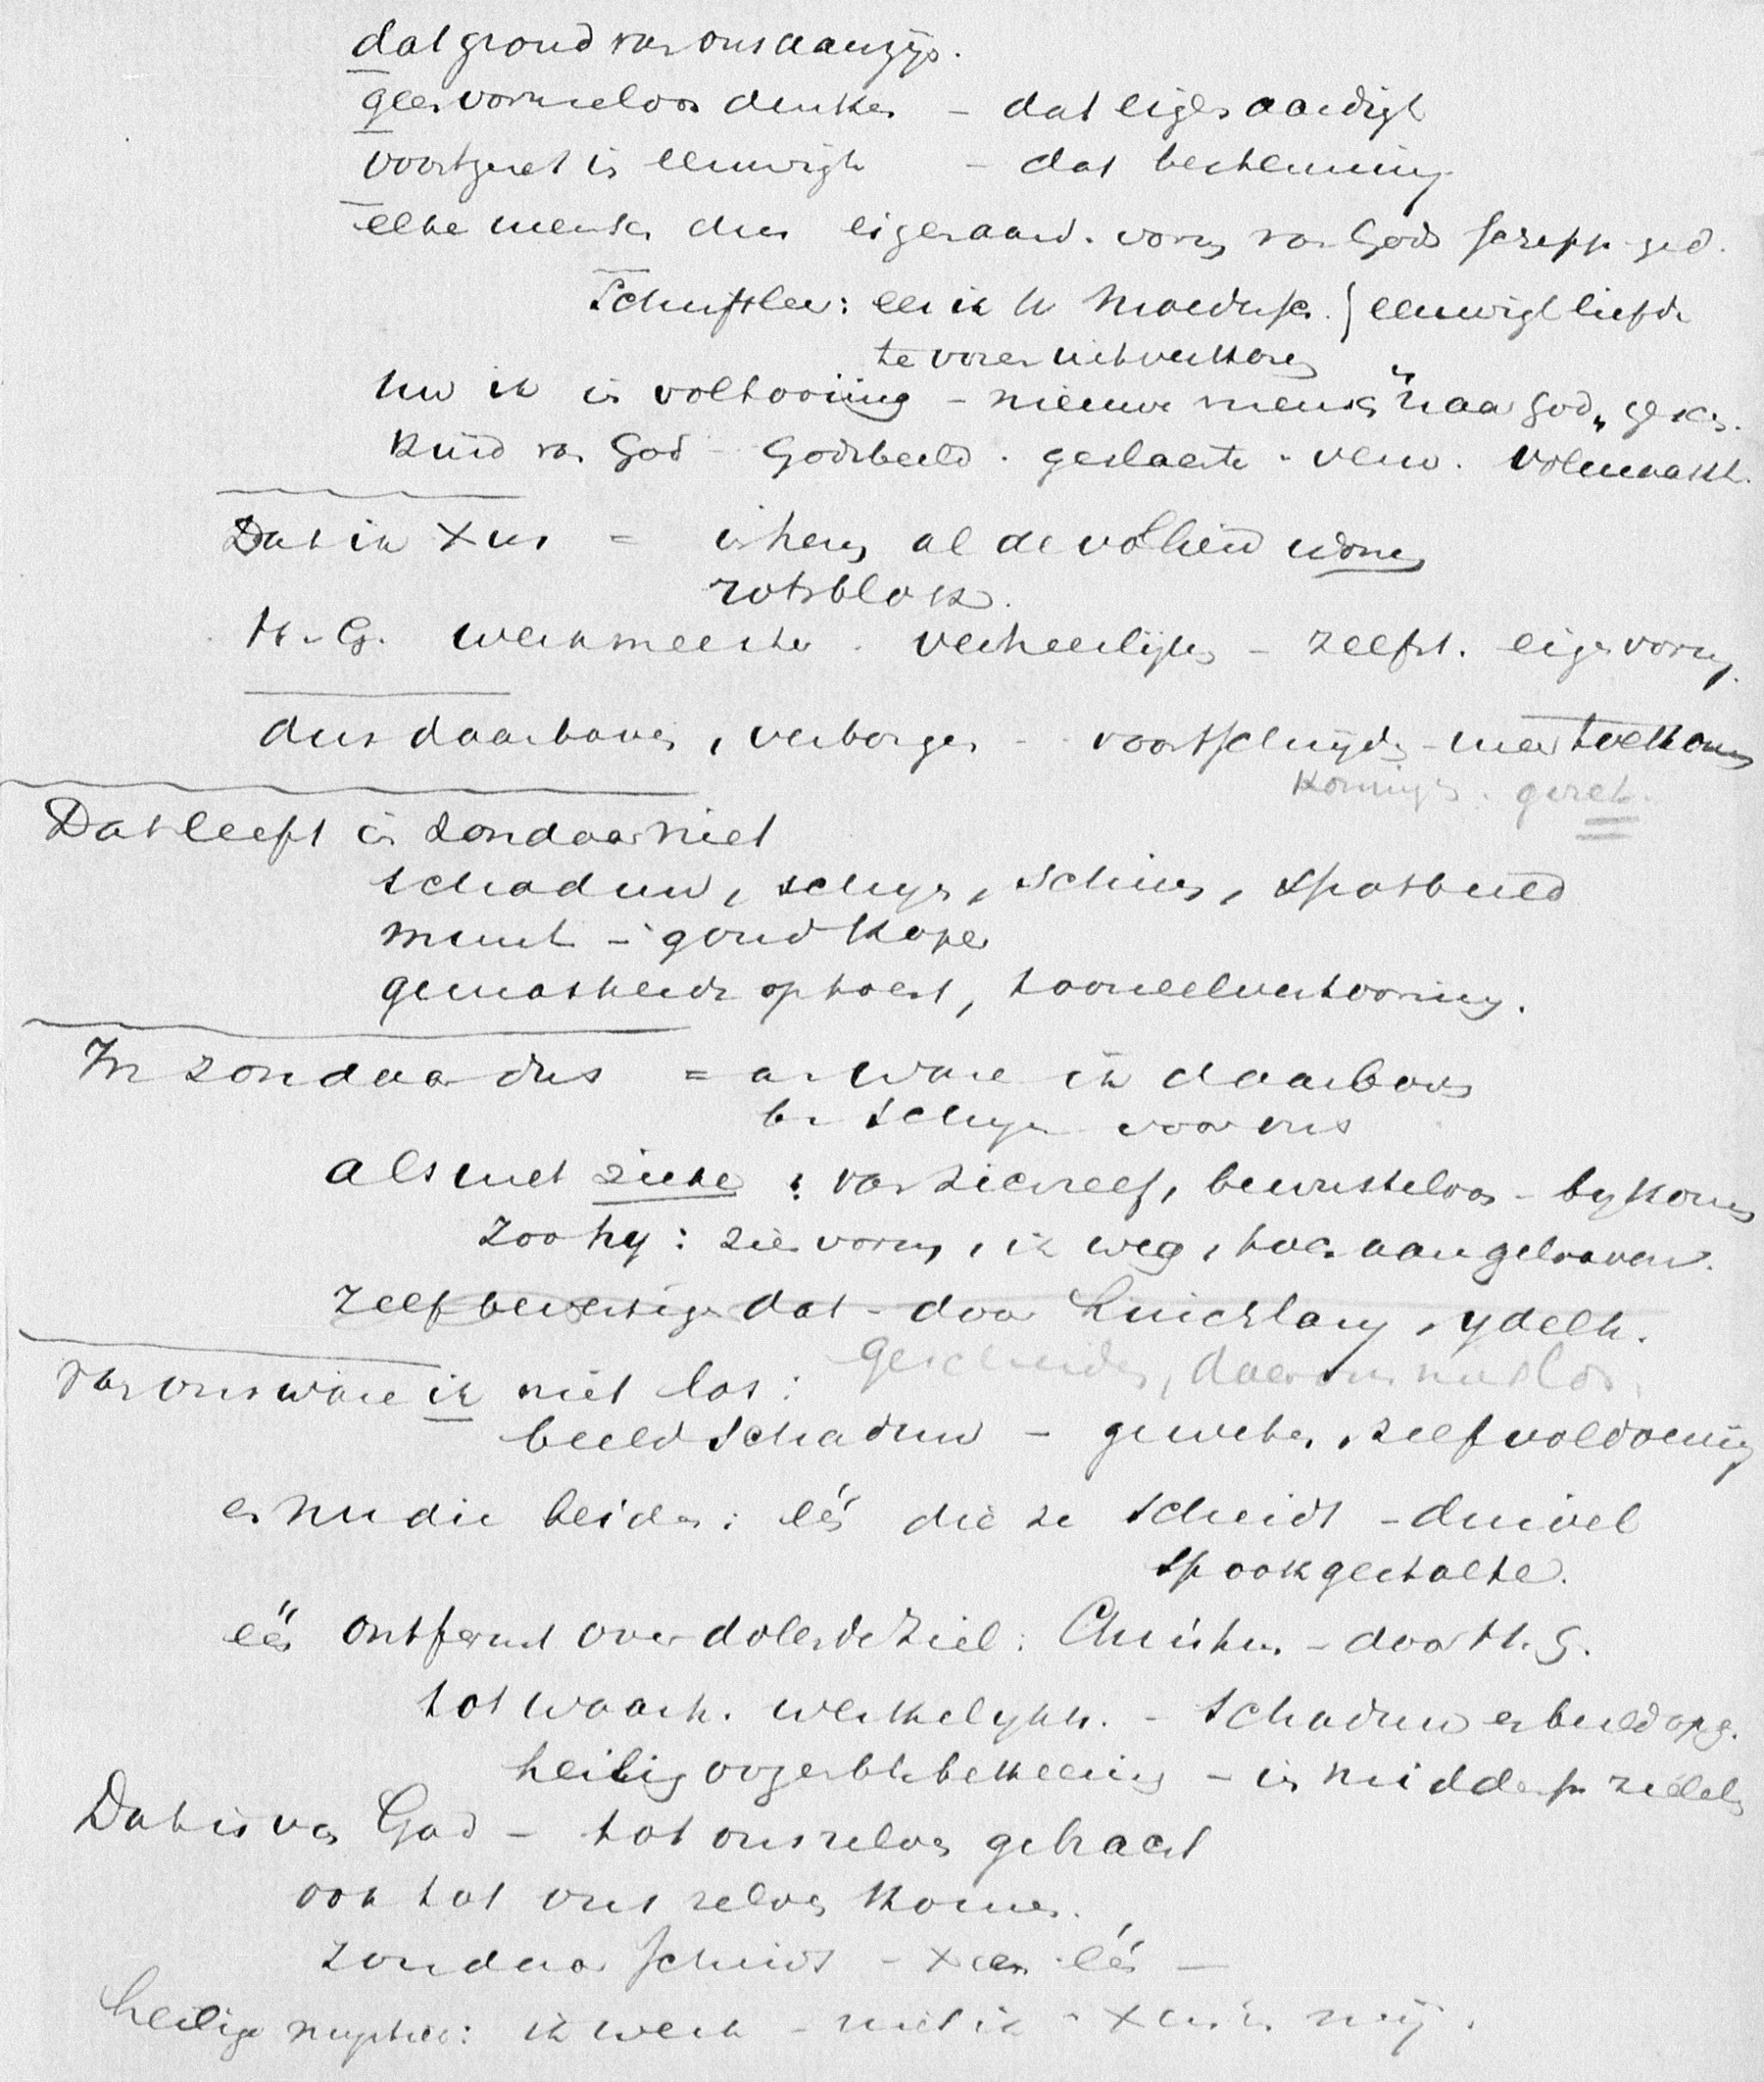 dat grond van ons aanzijn.
geen vormeloos denken - dat eigenaardigh
voortgezet is eeuwigh - dat bestemming
elke mensch dus eigenaard. vorm van Gods schepp. ged.
Schriftleer: een ik in Moedersch. / eeuwigh liefde
te voren uitverkoren
nu ik is voltooiing - nieuwe mensch "naar God" gesch.
Kind van God - Godsbeeld - geslacht - volmaakth.
Dat in Xus = in hem al de volheid wonen
rotsblok.
H. G. werkmeester. verheerlijken - zelfst. eigen vorm.
dus daarboven, verborgen - voortschrijdend - toekomen
Koningr. gezet.
Dat leeft in zondaar niet
schaduw, schijn, schim, spotbeeld
munt - goud koper
gemaskerde optocht, tooneelvertooning.
In zondaar dus = ware ik daarboven
schijn voor ons
als met zieke : bewusteloos - bykomen
zoo hy : zijn vorm, ik weg, toch aan gelooven.
Zelf bevestigen dat - door ydelh.
Gescheiden, daarom niet los.
van ons ware ik niet los:
beeld schaduw - geweten, zelfvoldoening
en nu die beiden: één die ze scheidt - duivel
spookgestalte.
één ontfermt over dolende ziel: Christus - door H. G.
tot waarh. werkelykh. - schaduw en beeld opg.
heilig oogenbl. bekeering - in midden
Dat is van God - tot ons zelven gebracht
ook tot ons zelven komen.
zondaar scheidt - Xus één -
heilige mystiek: ik werk - niet ik - Xus in mij.